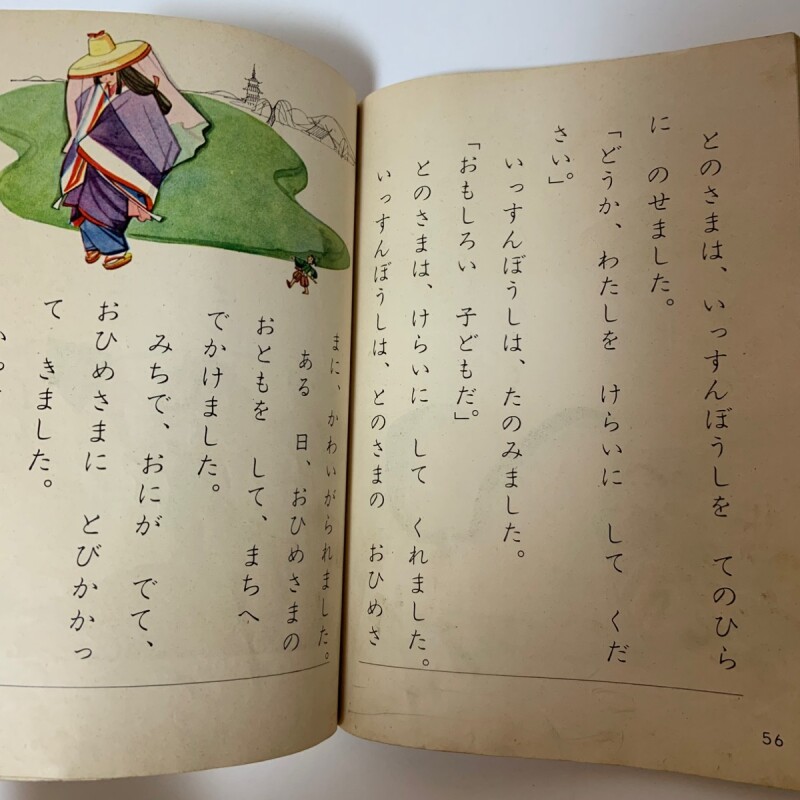 とのさまは、いっすんぼうしを てのひら
に のせました。
「どうか、わたしを けらいに して くだ
さい。」
いっすんぼうしは、たのみました。
「おもしろい 子どもだ。」
とのさまは、けらいに して くれました。
いっすんぼうしは、とのさまの おひめさ
56
まに、かわいがられました。
ある 日、おひめさまの
おともを して、まちへ
でかけました。
みちで、おにが でて、
おひめさまに とびかかっ
て きました。